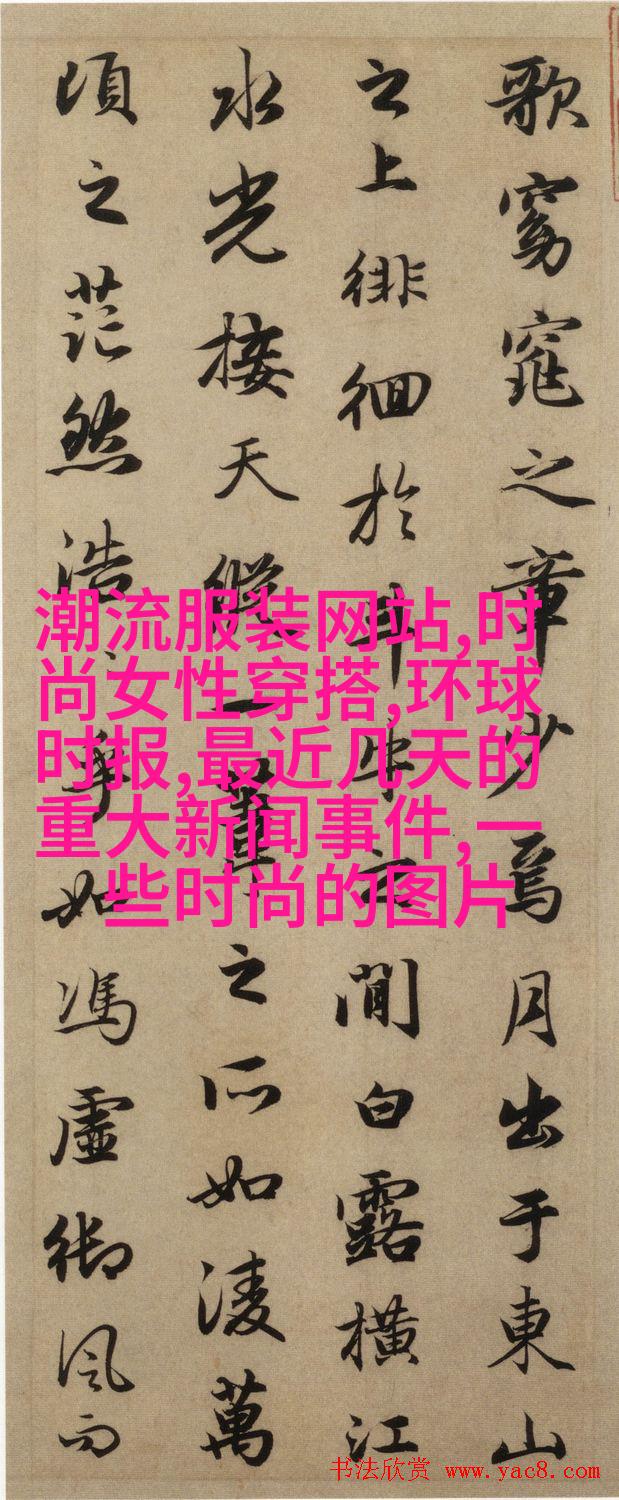 歌窈窕之章少焉月出于東山
之上徘徊於斗牛之間白露橫江
水光接天縱一葦之所如淩萬
頃之茫然浩〻乎如馮虛御風而
潮流服装网站,时
尚女性穿搭,环球
时报,最近几天的
重大新闻事件,一
些时尚的图片
书法欣赏 www.yac8.com